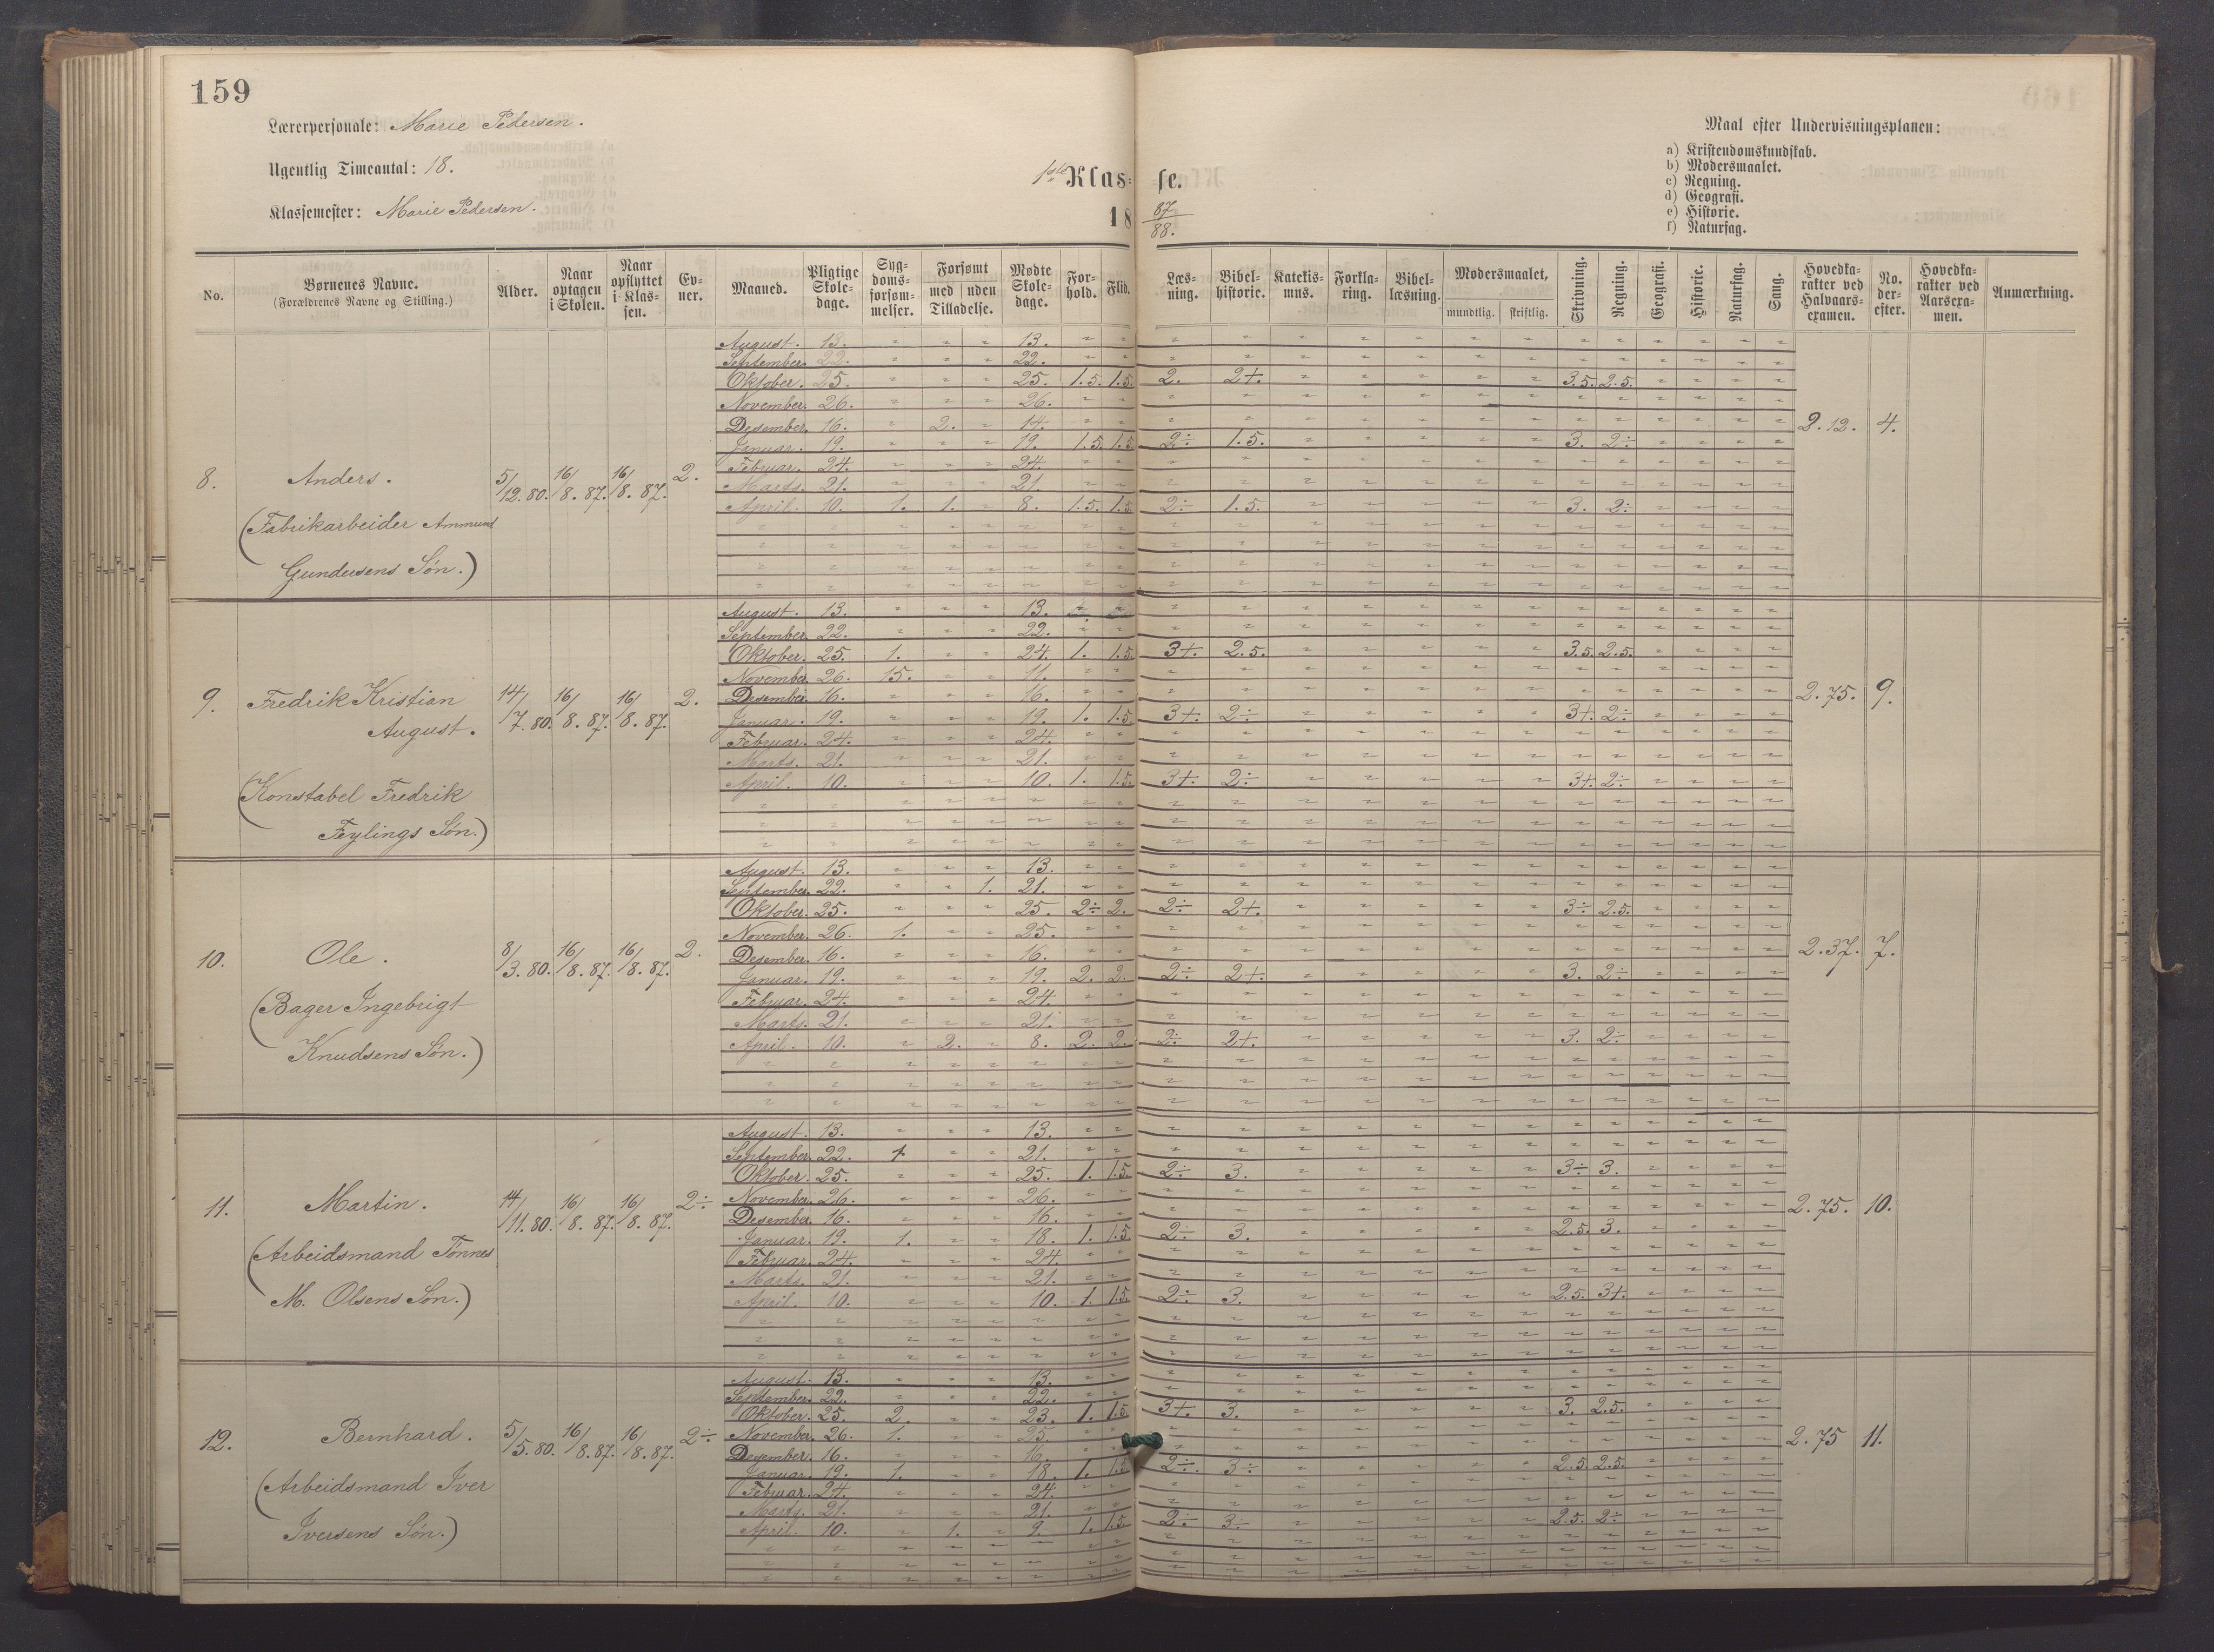 159
Lærerpersonale: Marie Pedersen.
Ugentlig Timeantal: 18.
Klassemester: Marie Pedersen.
1ste Klas- se.
18 87/88.
Maal efter Undervisningsplanen:
a) Kristendomskundskab.
b) Modersmaalet.
c) Regning.
d) Geografi.
e) Historie.
f) Naturfag.
No. | Børnenes Navne. (Forældrenes Navne og Stilling.) | Alder. | Naar optagen i Skolen. | Naar opflyttet i Klassen. | Evner. | Maaned. | Pligtige Skoledage. | Sygdomsforsømmelser. | Forsømt med Tilladelse. | uden Tilladelse. | Mødte Skoledage. | Forhold. | Flid. | Læsning. | Bibelhistorie. | Katekismus. | Forklaring. | Bibellæsning. | Modersmaalet, mundtlig. | skriftlig. | Skrivning. | Regning. | Geografi. | Historie. | Naturfag. | Sang. | Hovedkarakter ved Halvaarsexamen. | No. derefter. | Hovedkarakter ved Aarsexamen. | Anmærkning.
8. Anders. 5/12.80. 16/8.87. 16/8.87. 2. 2.12. 4.
(Fabrikarbeider Ammund
Gundersens Søn.)
August. 13. " " " 13. " "
September. 22. " " " 22. " "
Oktober. 25. " " " 25. 1.5. 1.5. 2. 2+. 3.5. 2.5.
November. 26. " " " 26. " "
Desember. 16. " 2. " 14. " "
Januar. 19. " " " 19. 1.5. 1.5. 2÷ 1.5. 3. 2÷
Februar. 24. " " " 24. " "
Marts. 21. " " " 21. " "
April. 10. 1. 1. " 8. 1.5. 1.5. 2÷ 1.5. 3. 2÷
9. Fredrik Kristian 14/7.80. 16/8.87. 16/8.87. 2. 2.75. 9.
August.
(Konstabel Fredrik
Feylings Søn.)
August. 13. " " " 13. " "
September. 22. " " " 22. " "
Oktober. 25. 1. " " 24. 1. 1.5. 3+. 2.5. 3.5. 2.5.
November. 26. 15. " " 11. " "
Desember. 16. " " " 16. " "
Januar. 19. " " " 19. 1. 1.5. 3+. 2÷ 3+. 2÷
Februar. 24. " " " 24. " "
Marts. 21. " " " 21. " "
April. 10. " " " 10. 1. 1.5. 3+. 2÷ 3+. 2÷
10. Ole. 8/3.80. 16/8.87. 16/8.87. 2. 2.37. 7.
(Bager Ingebrigt
Knudsens Søn.)
August. 13. " " " 13. " "
September. 22. " " 1. 21. " "
Oktober. 25. " " " 25. 2÷ 2. 2÷ 2+. 3÷ 2.5.
November. 26. 1. " " 25. " "
Desember. 16. " " " 16. " "
Januar. 19. " " " 19. 2. 2. 2÷ 2+. 3. 2÷
Februar. 24. " " " 24. " "
Marts. 21. " " " 21. " "
April. 10. " 2. " 8. 2. 2. 2÷ 2+. 3. 2÷
11. Martin. 14/11.80. 16/8.87. 16/8.87. 2÷ 2.75. 10.
(Arbeidsmand Tønnes
M. Olsens Søn.)
August. 13. " " " 13. " "
September. 22. 1 " " 21. " "
Oktober. 25. " " " 25. 1. 1.5. 2÷ 3. 3÷ 3.
November. 26. " " " 26. " "
Desember. 16. " " " 16. " "
Januar. 19. 1. " " 18. 1. 1.5. 2÷ 3. 2.5. 3.
Februar. 24. " " " 24. " "
Marts. 21. " " " 21. " "
April. 10. " " " 10. 1. 1.5. 2÷ 3. 2.5. 3+.
12. Bernhard. 5/5.80. 16/8.87. 16/8.87. 2÷ 2.75 11.
(Arbeidsmand Iver
Iversens Søn.)
August. 13. " " " 13. " "
September. 22. " " " 22. " "
Oktober. 25. 2. " " 23. 1. 1.5. 3+. 3. 3. 2.5.
November. 26. 1. " " 25. " "
Desember. 16. " " " 16. " "
Januar. 19. 1. " " 18. 1. 1.5. 2÷. 3÷ 2.5. 2.5.
Februar. 24. " " " 24. " "
Marts. 21. " " " 21. " "
April. 10. " 1. " 9. 1. 1.5. 2÷ 3÷ 2.5. 2÷